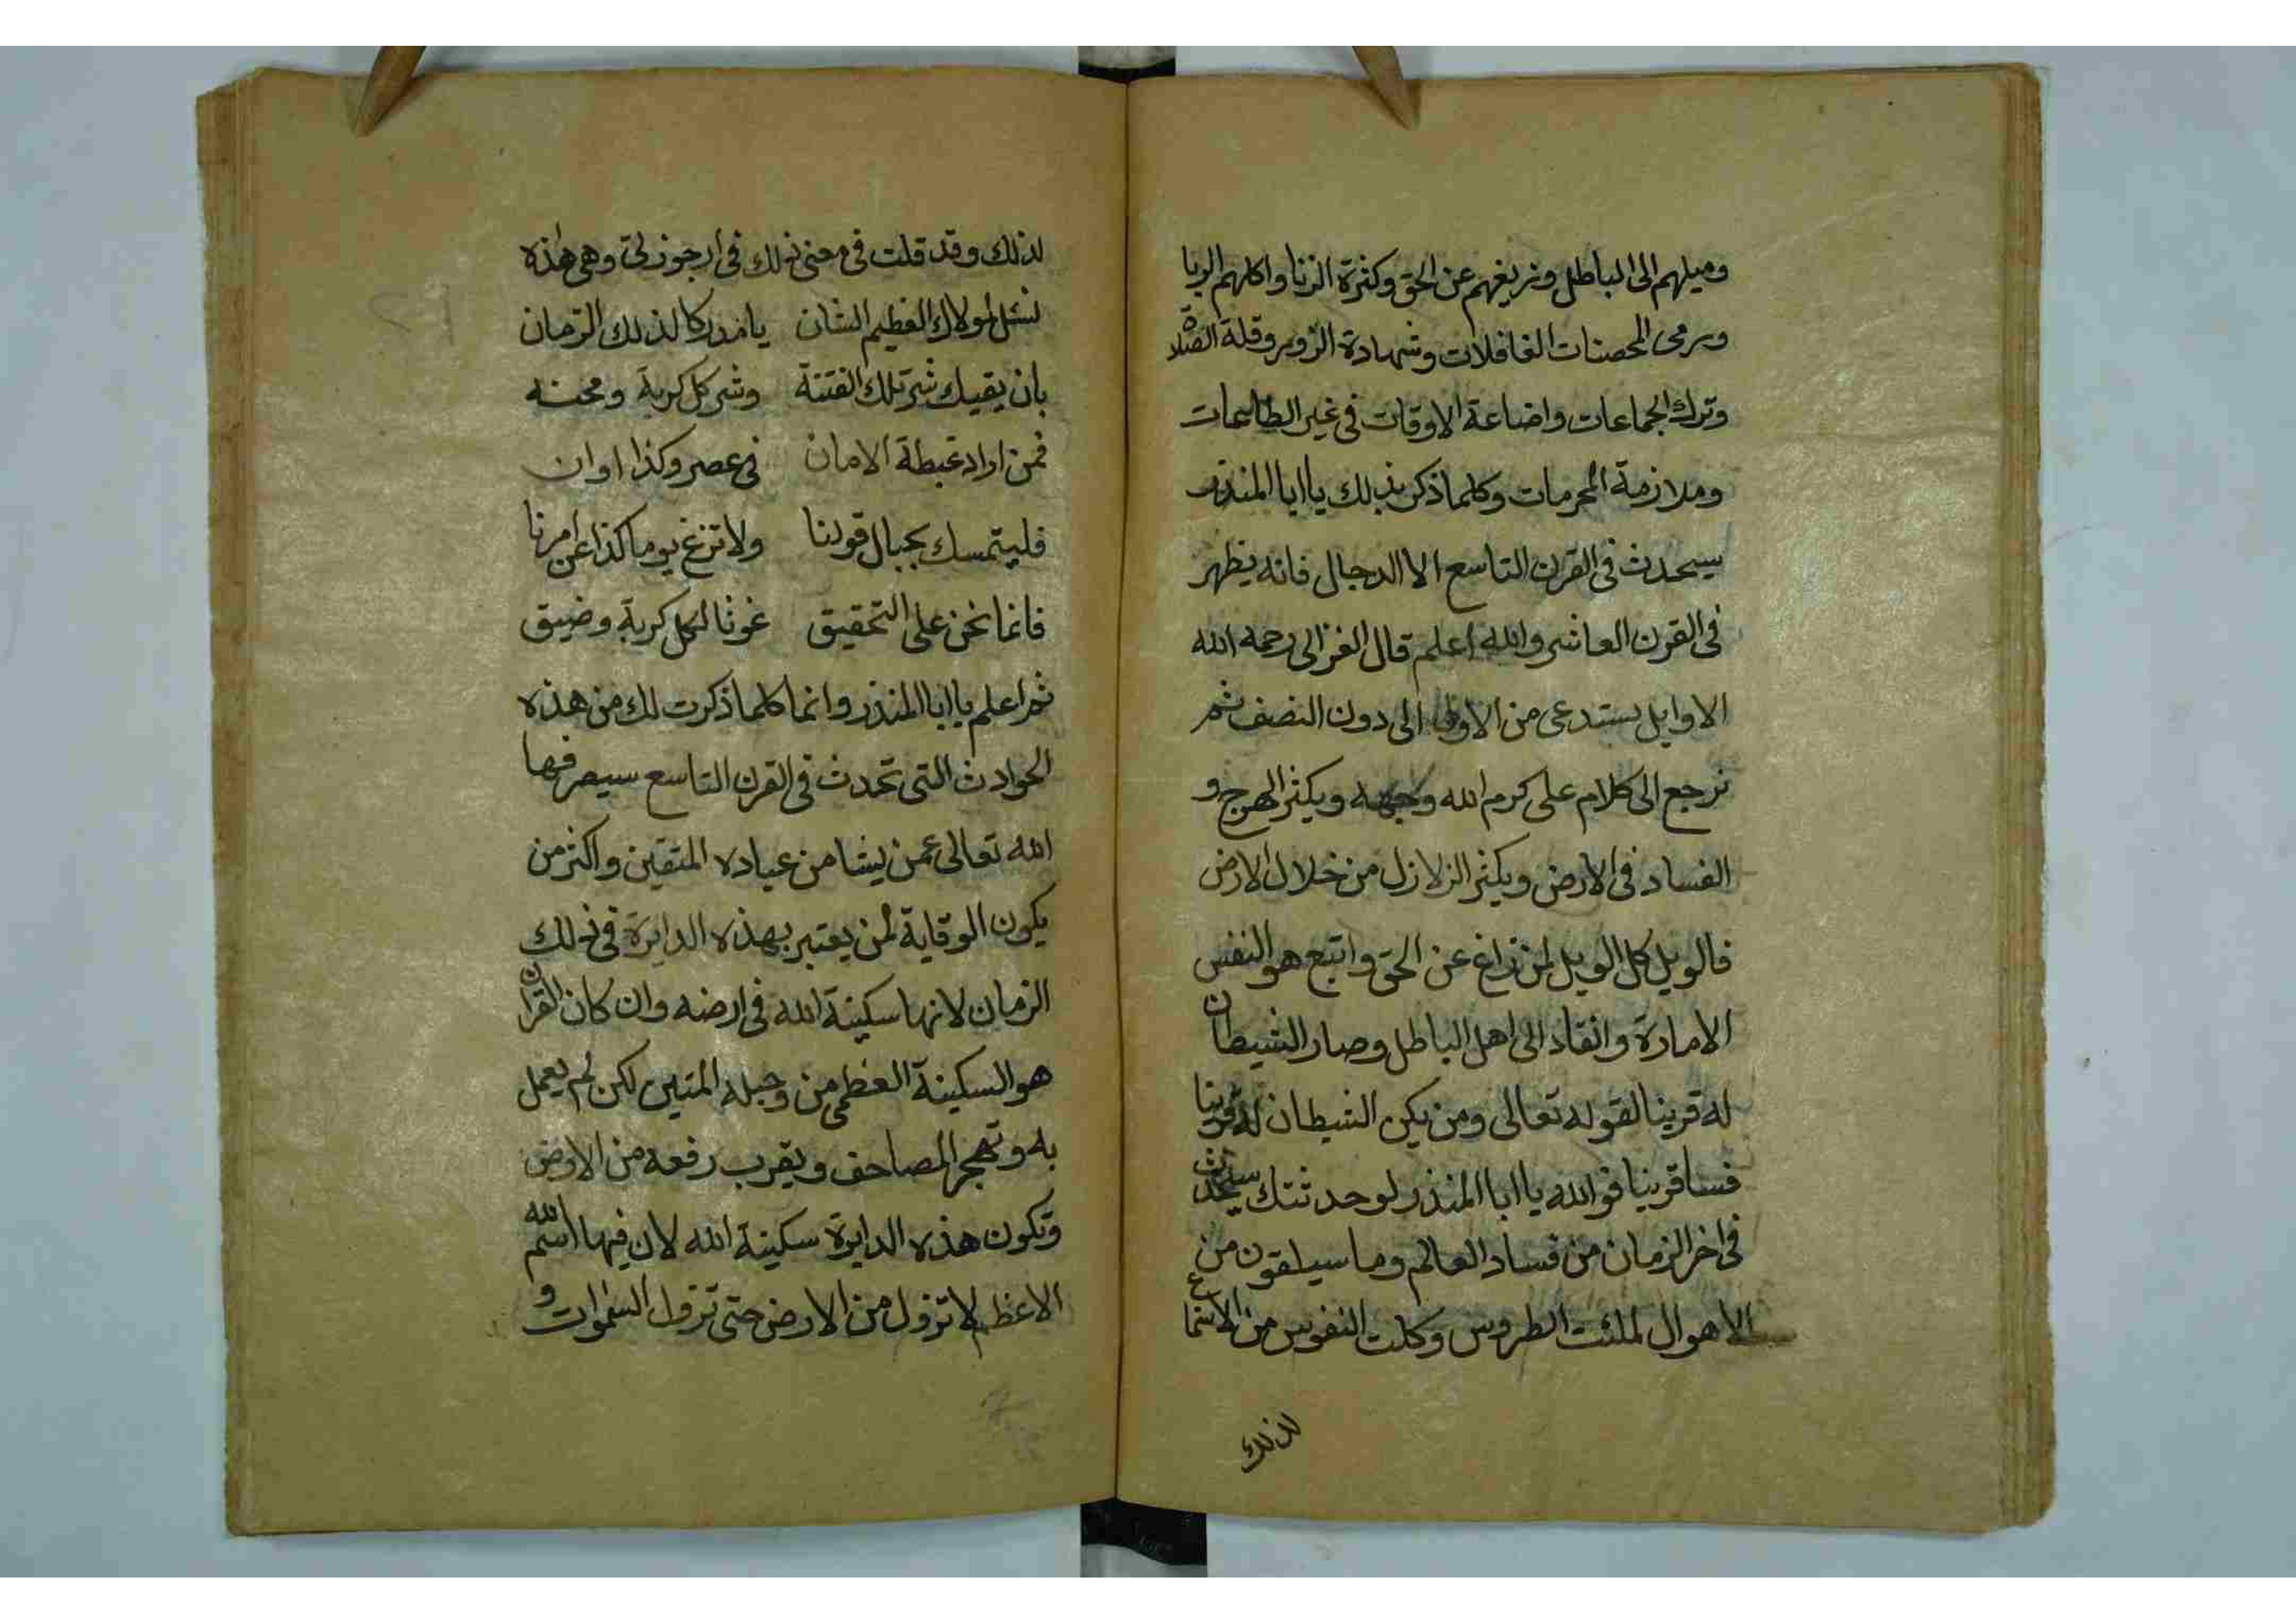 وميلهم الى الباطل وزيغهم عن الحق وكثرة الزنا واكلهم الربا
ورمى المحصنات الغافلات وشهادة الزور وقلة الصلاة
وترك الجماعات واضاعة الاوقات في غير الطاعات
وملازمة المحرمات وكلما ذكر بذلك يا ابا المنذر
سيحدث في القرن التاسع الا الدجال فانه يظهر
في القرن العاشر والله اعلم قال الغزالى رحمه الله
الاوايل يستدعى من الاوقا الى دون النصف ثم
نرجع الى كلام على كرم الله وجهه ويكثر الهرج و
الفساد في الارض ويكثر الزلازل من خلال الارض
فالويل كل الويل لمن زاغ عن الحق واتبع هو النفس
الامارة وانقاد الى اهل الباطل وصار الشيطان
له قرينا لقوله تعالى ومن يكن الشيطان له قرينا
فسا قرينا فوالله يا ابا المنذر لو حدثتك سيحدث
في اخر الزمان من فساد العالم وما سيلقون من
الاهوال لملئت الطروس وكلت النفوس من الاسماع
لذلك
لذلك وقد قلت في معنى ذلك في ارجوزتى وهى هذه
لنسئل لمولاك العظيم الشان يا مدركا لذلك الزمان
بان يقيك شر تلك الفتنة وشر كل كربة ومحنه
فمن اراد غبطة الامان في عصر وكذا اوان
فليتمسك بحبال قولنا ولا تزغ يوما كذا عن امرنا
فانما نحن على التحقيق غوثا لكل كربة وضيق
ثم اعلم يا ابا المنذر وانما كلما ذكرت لك من هذه
الحوادث التى تحدث في القرن التاسع سيصرفها
الله تعالى عمن يشا من عباده المتقين واكثر من
يكون الوقاية لمن يعتبر بهذه الدايرة في ذلك
الزمان لانها سكينة الله في ارضه وان كان القران
هو السكينة العظمى من وحبله المتين لكن لم يعمل
به وتهجر المصاحف ويقرب رفعه من الارض
وتكون هذه الدايرة سكينة الله لان فيها اسم الله
الاعظم لا تزول من الارض حتى تزول السموات و